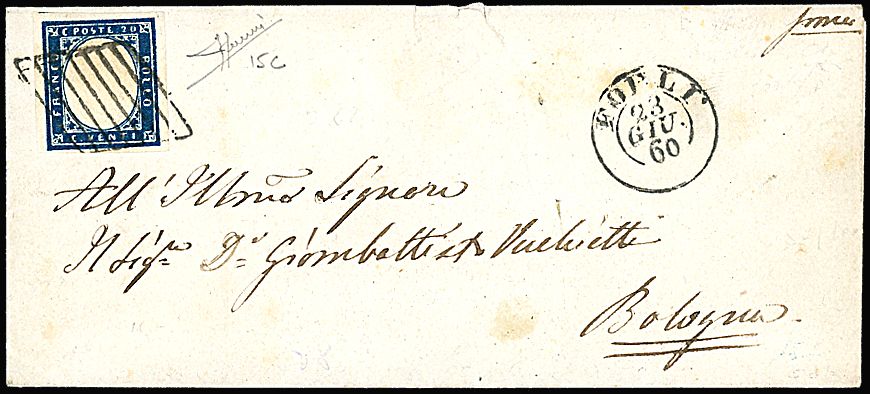 C. POSTE. 20
FRANCO
BOLLO
C. VENTI
15C
franca
FORLI
23
GIU.
60
All' Illmo Signore
Il Sigre Dr Giombattista
Bologna